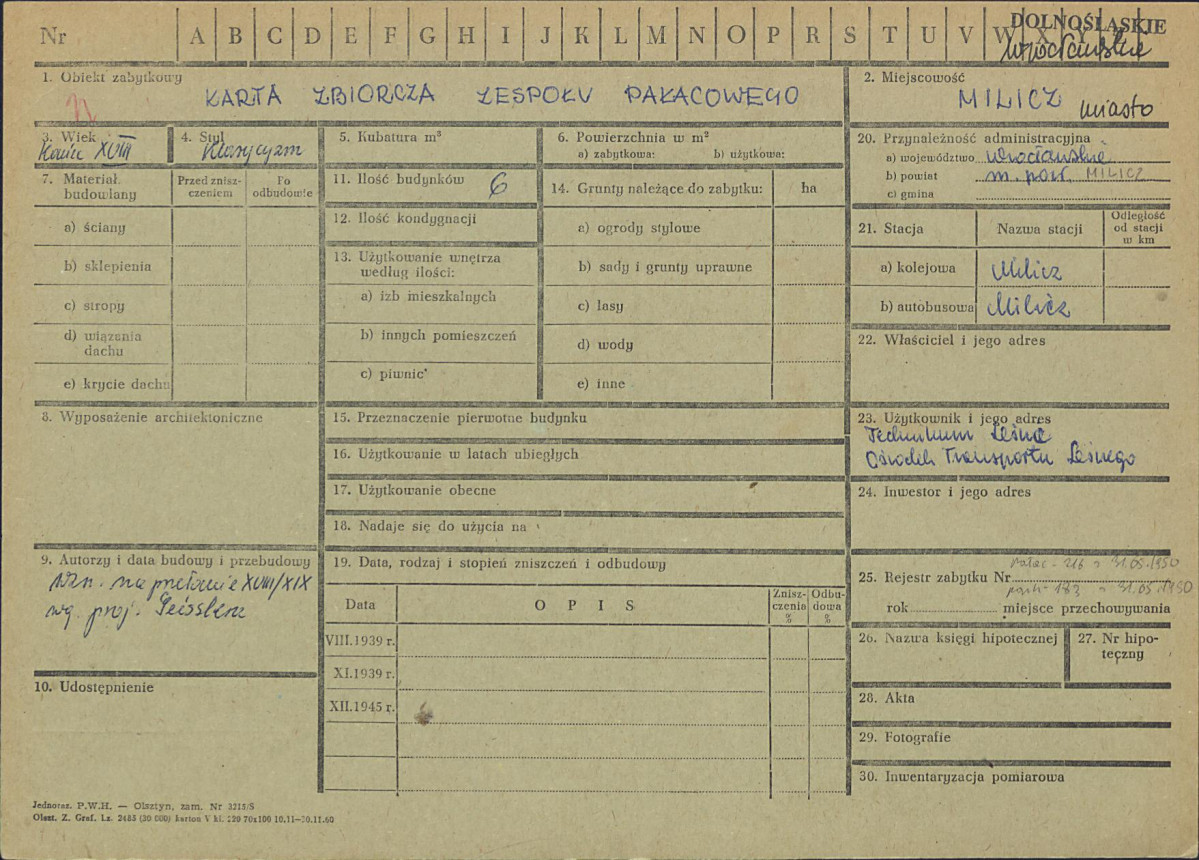 Nr A B C D E F G H I J K L M N O P R S T U V W X Y Z
DOLNOŚLĄSKIE
wrocławskie
1. Obiekt zabytkowy
KARTA ZBIORCZA ZESPOŁU PAŁACOWEGO
2. Miejscowość
MILICZ miasto
3. Wiek
Koniec XVIII
4. Styl
Klasycyzm
5. Kubatura m³
6. Powierzchnia w m²
a) zabytkowa: b) użytkowa:
20. Przynależność administracyjna
a) województwo wrocławskie
b) powiat m. pow. MILICZ
c) gmina
7. Materiał budowlany
Przed zniszczeniem
Po odbudowie
a) ściany
b) sklepienia
c) stropy
d) wiązania dachu
e) krycie dachu
11. Ilość budynków 6
12. Ilość kondygnacji
13. Użytkowanie wnętrza
według ilości:
a) izb mieszkalnych
b) innych pomieszczeń
c) piwnic
14. Grunty należące do zabytku: ha
a) ogrody stylowe
b) sady i grunty uprawne
c) lasy
d) wody
e) inne
21. Stacja
Nazwa stacji
Odległość
od stacji
w km
a) kolejowa Milicz
b) autobusowa Milicz
22. Właściciel i jego adres
8. Wyposażenie architektoniczne
15. Przeznaczenie pierwotne budynku
16. Użytkowanie w latach ubiegłych
17. Użytkowanie obecne
18. Nadaje się do użycia na
23. Użytkownik i jego adres
Technikum Leśne
Ośrodek Transportu Leśnego
24. Inwestor i jego adres
9. Autorzy i data budowy i przebudowy
Wzn. na przełomie XVIII/XIX
wg. proj. Geisslera
19. Data, rodzaj i stopień zniszczeń i odbudowy
Data
O P I S
Zniszczenia
%
Odbudowa
%
VIII.1939 r.
XI.1939 r.
XII.1945 r.
pałac - 216 z 31.05.1950
25. Rejestr zabytku Nr
park - 183 z 31.05.1950
rok miejsce przechowywania
26. Nazwa księgi hipotecznej
27. Nr hipoteczny
10. Udostępnienie
28. Akta
29. Fotografie
30. Inwentaryzacja pomiarowa
Jednoraz. P.W.H. — Olsztyn, zam. Nr 3215/S
Olszt. Z. Graf. Lz. 2485 (20 000) karton V kl. 220 70x100 10.11—30.11.60